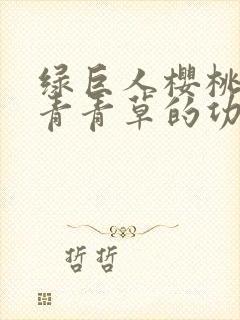 绿巨人樱桃
青青草的功
哲哲